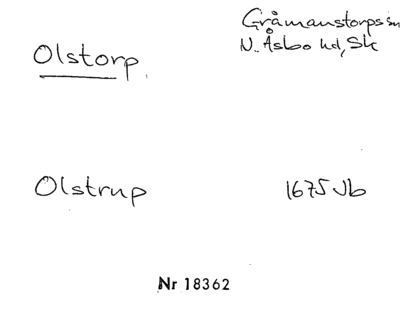 Olstorp
Gråmanstorps sn
N. Åsbo hd, Sk
Olstrup
1675 Jb
Nr 18362